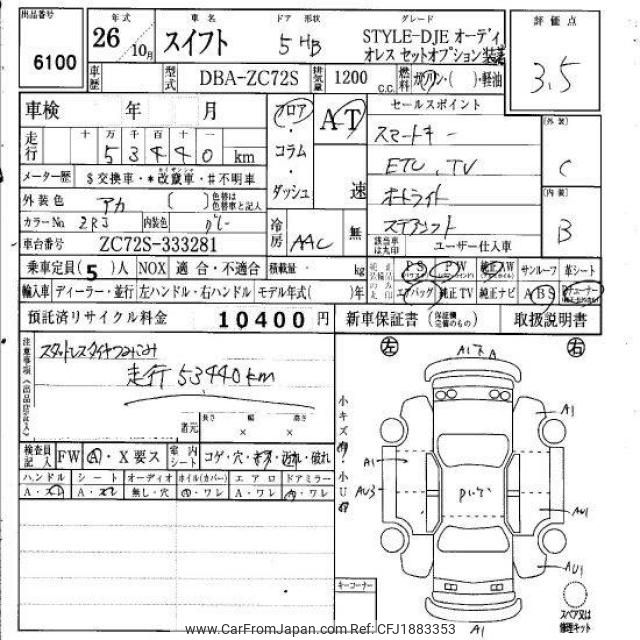 出品番号
6100
年式 車名 ドア 形状 グレード
26 10月 スイフト 5 HB STYLE-DJE オーディ
オレス セットオプション装着
評価点
3.5
車歴 型式 DBA-ZC72S 排気量 1200 C.C. 燃料 ガソリン・( )・軽油
車検 年 月
フロア・コラム・ダッシュ
AT 速
セールスポイント
スマートキー
ETC, TV
オートライト
走行 十 万 千 百 十 一
5 3 4 4 0 km
メーター歴 $交換車・*改竄車・#不明車
外装色 アカ ( ) 色替は色替車色と記入
カラーNo. ZRJ 内装色 グレー
車台番号 ZC72S-333281
冷房 AAC 無
該当車は丸印 ユーザー仕入車
[外装]
C
[内装]
B
乗車定員(5)人 NOX 適合・不適合 積載量 kg
PS PW 純正AW サンルーフ 革シート
輸入車 ディーラー・並行 左ハンドル・右ハンドル モデル年式( )年
エアバッグ 純正TV 純正ナビ ABS
預託済リサイクル料金 10400 円 新車保証書 (保証継完備のもの) 取扱説明書
注意事項(出品店記入)
スタッドレスタイヤつみこみ
走行 53440km
諸元 長さ 幅 高さ
× ×
検査員記入 FW A・X要ス 室内シート コゲ・穴・キズ・汚れ・破れ
ハンドル シート オーディオ ホイル(カバー) エアロ ドアミラー
A・スレ A・スレ 無し・穴 A・ワレ A・ワレ A・ワレ
小キズ有!小U有
左 右
A1
A1
A1
AU3
AU1
AU1
A1
キーコーナー
スペア又は
修理キット
www.CarFromJapan.com Ref: CFJ1883353